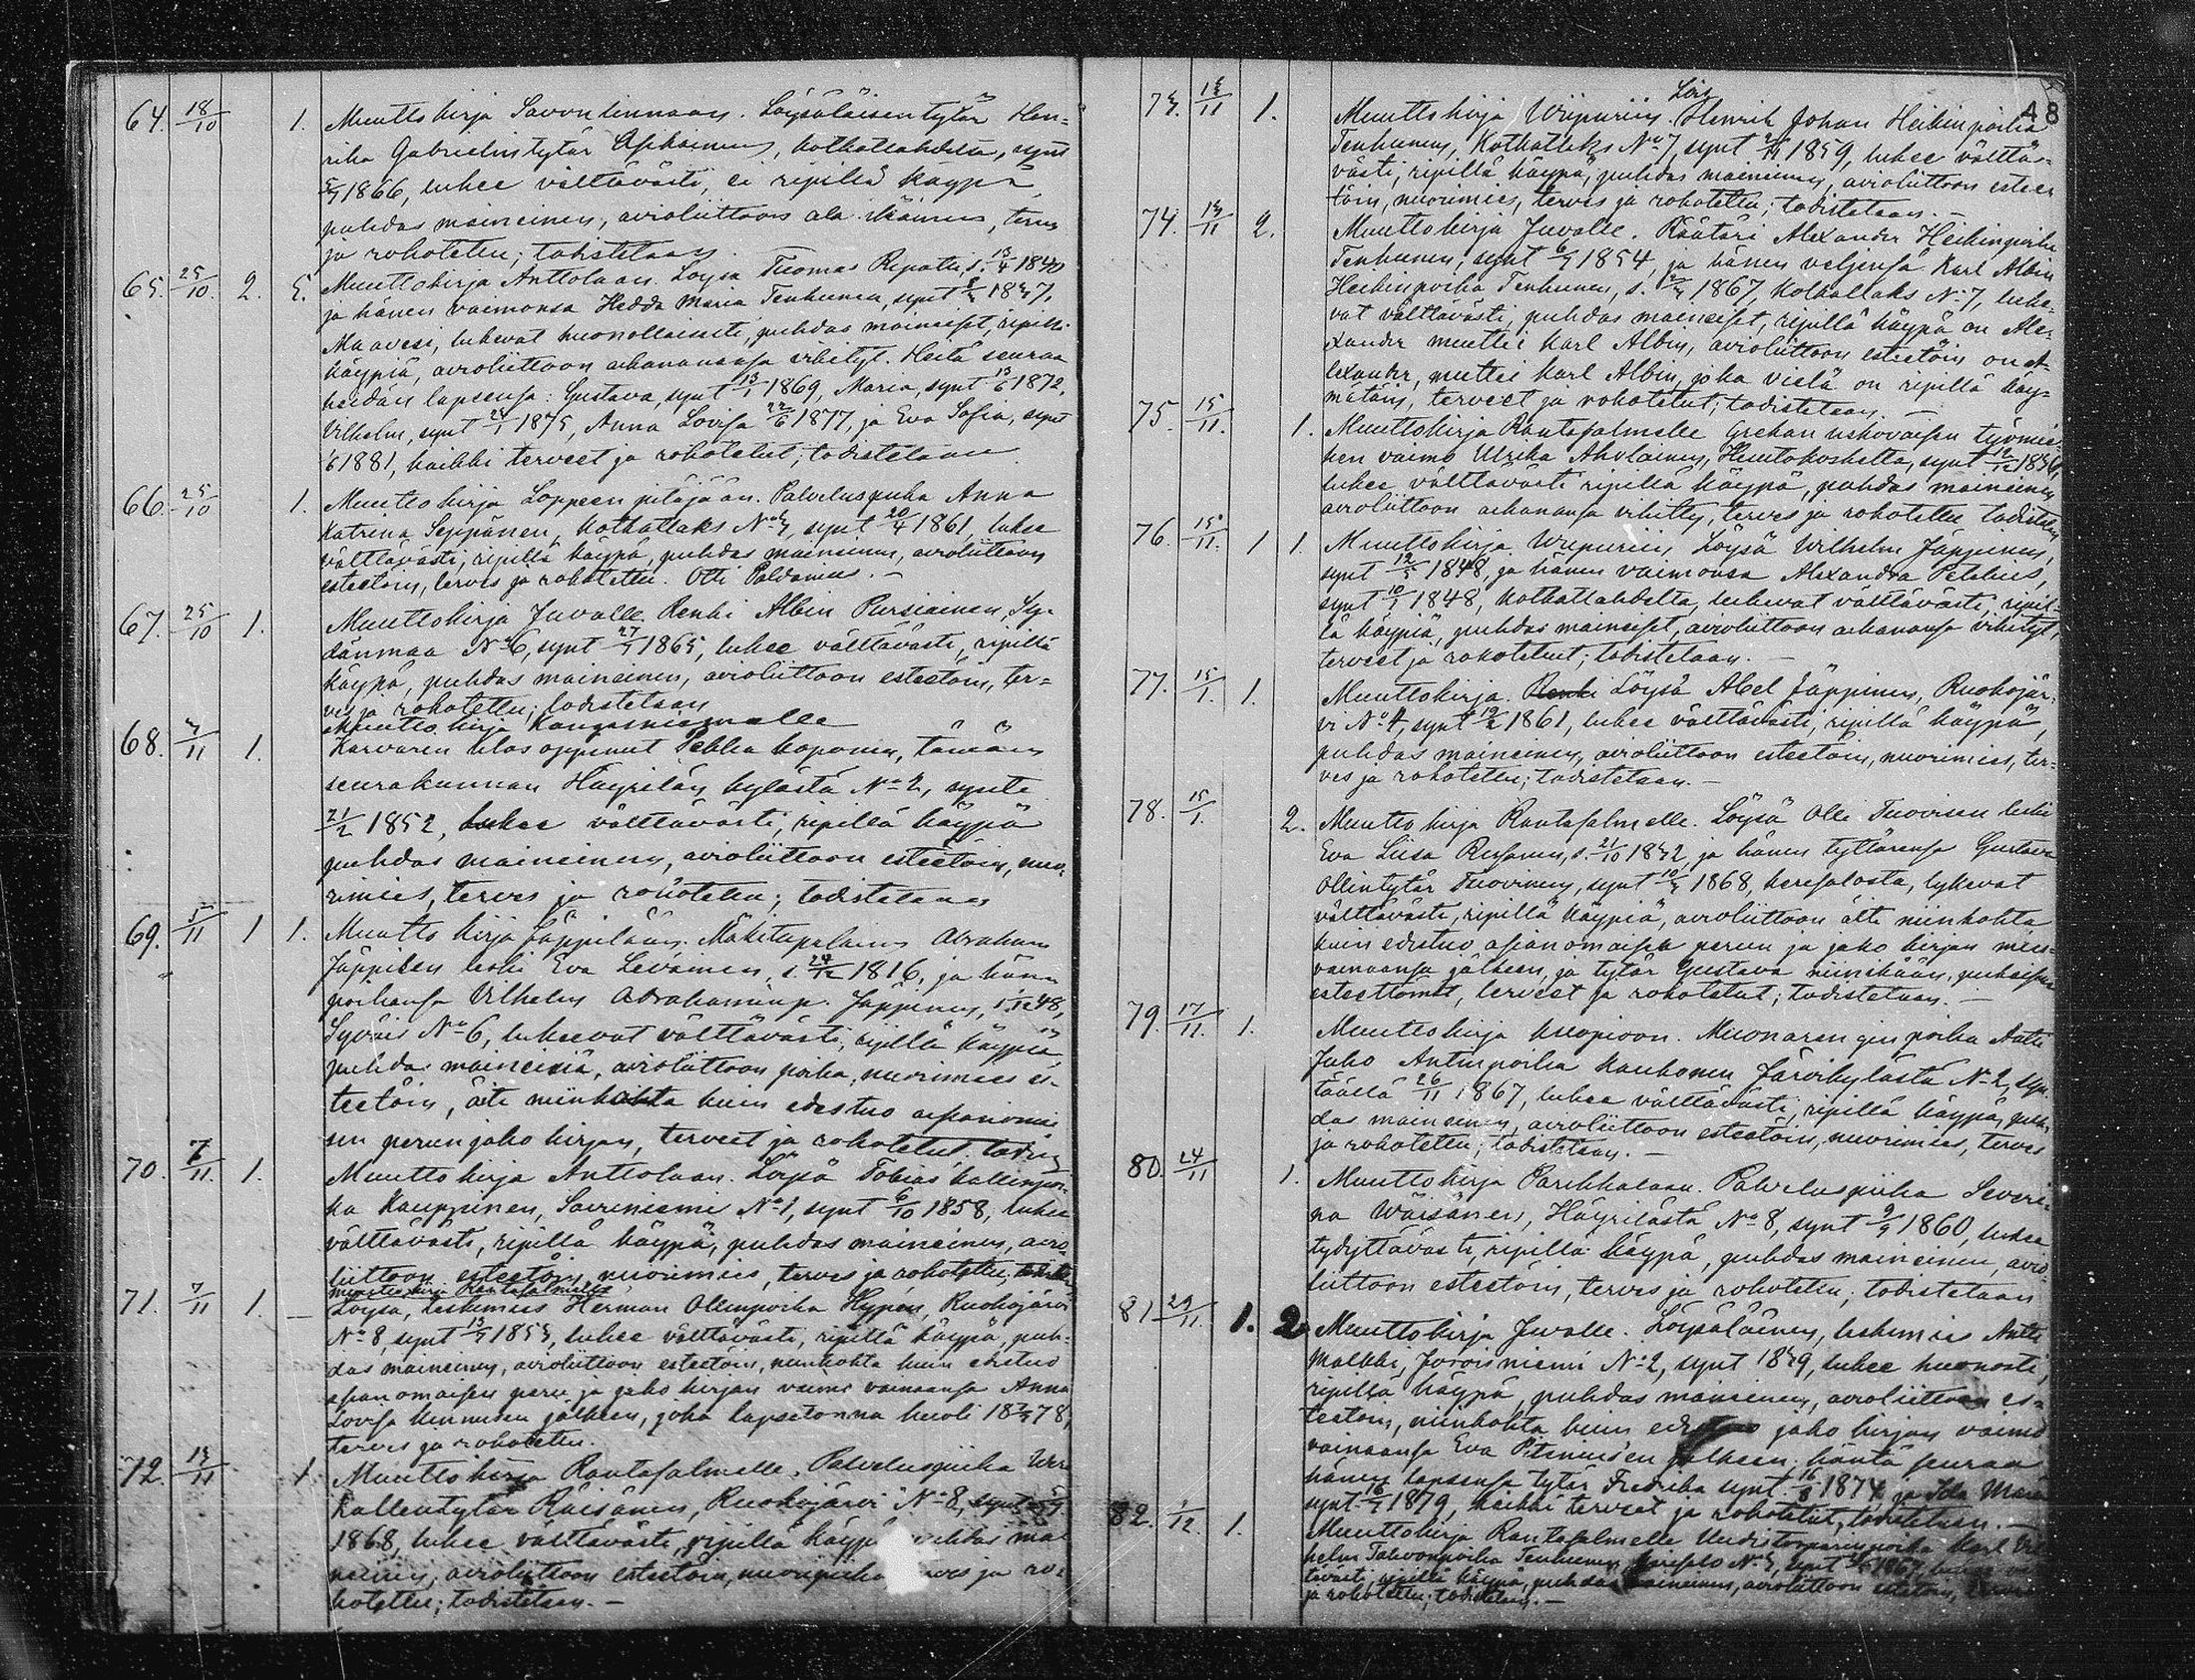 64. 18/10 1. Muuttokirja Savonlinnaan. Löysäläisen tytär Hen-
rika Gabrielintytär Asikainen, Kotkatlahdelta, synt
1866, lukee välttävästi, ei ripillä käypä
puhdas maineinen, avioliittoon ala-ikäinen, terve
ja rokotettu; todistetaan
65. 25/10. 2. 5. Muuttokirja Anttolaan. Löysä Tuomas Ripatti, s. 13/4 1840
ja hänen vaimonsa Hedda Maria Tenhunen, synt
Maavesi, lukevat huonollaisesti, puhdas maineiset, ripillä
käypiä, avioliittoon aikananansa vihityt. Heitä seuraa
heidän lapsensa: Gustava, synt 13/1 1869, Maria, synt 13/6 1872,
Vilhelm, synt 1875, Anna Lovisa 22/6 1877, ja Eva Sofia, synt
1881, kaikki terveet ja rokotetut; todistetaan
66. 25/10 1. Muuttokirja Loppeen pitäjään. Palveluspiika Anna
Katrina Seppänen, Kotkatlaks synt 20/4 1861, lukee
välttävästi, ripillä käypä, puhdas maineinen, avioliittoon
esteetöin, terves ja rokotettu. Otti Paldanius. -
67. 25/10 1. Muuttokirja Juvalle. Renki Albin Pursiainen, Sy-
dänmaa No 6, synt 1865, lukee välttävästi, ripillä
käypä, puhdas maineinen, avioliittoon esteetöin, ter-
ves ja rokotettu; todistetaan
Muuttokirja Kangasniemelle
68. 11 1. Karvarin ulos oppinut Pekka Koponen, tämän
seurakunnan Häyrilän kylästä No 2, synt
21/2 1852, lukee välttävästi, ripillä käypä
puhdas maineinen, avioliittoon esteetöin, nuo-
rimies, terves ja rokotettu; todistetaan
69. 5/11 1 1. Muutto kirja Jäppilään. Mäkitupalainen Abraham
Jäppisen leski Eva Leväinen, s. 1816, ja hänen
poikansa Vilhelm Abrahaminp. Jäppinen,
Syväis No 6, lukeevat välttävästi, ripillä käypiä
puhdas maineisia, avioliittoon poika, nuorimies es-
teetöin, äiti niinkohta kuin edestuo asianomai
sen perunjako kirjan, terveet ja rokotetut.
70. 7/11. 1. Muuttokirja Anttolaan. Löysä Tobias Kallenpoi-
ka Kauppinen, Savuniemi No 1, synt 6/10 1858, lukee
välttävästi, ripillä käypä, puhdas maineinen, avio-
liittoon esteetöin, nuorimies, terves ja rokotettu;
Muuttokirja Rantasalmelle
71. 7/11 1. Löysä, leskimies Herman Ollinpoika Hypén, Ruokojärvi
No 8, synt lukee välttävästi, ripillä käypä, puh-
das maineinen, avioliittoon esteetöin, niinkohta kuin edestuo
asianomaisen peru ja jako kirjan vaimo vainaansa Anna
Lovisa Kinnusen jälkeen, joka lapsetonna kuoli
terves ja rokotettu.
72. 1. Muuttokirja Rantasalmelle. Palveluspiika
Kallentytär Räisänen, Ruokojärvi No 8, synt
1868, lukee välttävästi, ripillä käypä puhdas mai
neinen, avioliittoon esteetöin, nuoripiika ja ro-
kotettu; todistetaan. -
48
73. 1. Muuttokirja Wiipuriin. Löis Henrik Johan Heikinpoika
Tenhunen, Kotkatlaks No 7, synt 1859, lukee välttä-
västi, ripillä käypä, puhdas maineinen, avioliittoon estee
töin, nuorimies, terves ja rokotettu; todistetaan. -
74. 2. Muuttokirja Juvalle. Räätäri Alexander Heikinpoika
Tenhunen, synt 1854, ja hänen veljensä Karl Albin
Heikinpoika Tenhunen, s. 1867, Kotkatlaks No 7, luke-
vat välttävästi, puhdas maineiset, ripillä käypä on Ale-
xander muttei Karl Albin, avioliittoon esteetöin on A-
lexander, muttei Karl Albin, joka vielä on ripillä käy-
mätöin, terveet ja rokotetut; todistetaan. -
75. 15/11. 1. Muuttokirja Rantasalmelle Grekan uskovaisen työmie-
hen vaimo Ulrika Aholainen, Huutokoskelta, synt
lukee välttävästi ripillä käypä, puhdas maineinen
avioliittoon aikanansa vihitty, terves ja rokotettu todistetaan
76. 15/11. 1 1. Muuttokirja Wiipuriin, Löysä Wilhelm Jäppinen,
synt 1848, ja hänen vaimonsa Alexandra Petelius,
synt 1848, Kotkatlahdelta, lukevat välttävästi, ripil-
lä käypiä, puhdas maineiset, avioliittoon aikanansa vihityt,
terveet ja rokotetut; todistetaan. -
77. 15/1. 1. Muuttokirja. Renki Löysä Abel Jäppinen, Ruokojär-
vi No 4, synt 1861, lukee välttävästi, ripillä käypä,
puhdas maineinen, avioliittoon esteetöin, nuorimies, ter-
ves ja rokotettu; todistetaan. -
78. 15/1. 2. Muutto kirja Rantasalmelle. Löysä Olli Tuovisen leski
Eva Liisa s. 21/10 ja hänen tyttärensä Gustava
Ollintytär Tuovinen, synt 1868, lukevat
välttävästi, ripillä käypiä, avioliittoon äiti niinkohta
kuin edestuo asianomaisen perun ja jako kirjan mies-
vainaansa jälkeen, ja tytär Gustava niinikään,
esteettömät, terveet ja rokotetut; todistetaan. -
79. 17/11. 1. Muuttokirja Kuopioon. Muonarengin poika Antti
Juho Antinpoika Kauhonen Järvikylästä No 2, syn.
täällä 26/11 1867, lukee välttävästi, ripillä käypä, puh-
das maineinen, avioliittoon esteetöin, nuorimies, terves
ja rokotettu; todistetaan. -
80. 24/11 1. Muuttokirja Parikkalaan. Palveluspiika Severi-
na Wäisänen, Häyrilästä No 8, synt 9/9 1860, lukee
tydyttävästi, ripillä käypä, puhdas maineinen, avio-
liittoon esteetöin, terves ja rokotettu, todistetaan
81 29/11. 1. 2 Muuttokirja Juvalle. Löysäläinen, leskimies Antti
Malkki, Joroisniemi No 2, synt lukee huonosti,
ripillä käypä, puhdas maineinen, avioliittoon es-
teetöin, niinkohta kuin jako kirjan vaimo
vainaansa Eva jälkeen. häntä seuraa
hänen lapsensa tytär Fredrika synt. 16/8 1874 ja Ida Maria
synt. 1879, kaikki terveet ja rokotetut, todistetaan. -
82. 1/12. 1. Muuttokirja Rantasalmelle Uudistorpparinpoika Karl Vil
helm Tahvonpoika Tenhunen, synt 1867,
tävästi ripillä käypä, puhdas maineinen, avioliittoon esteetöin,
ja rokotettu; todistetaan. -